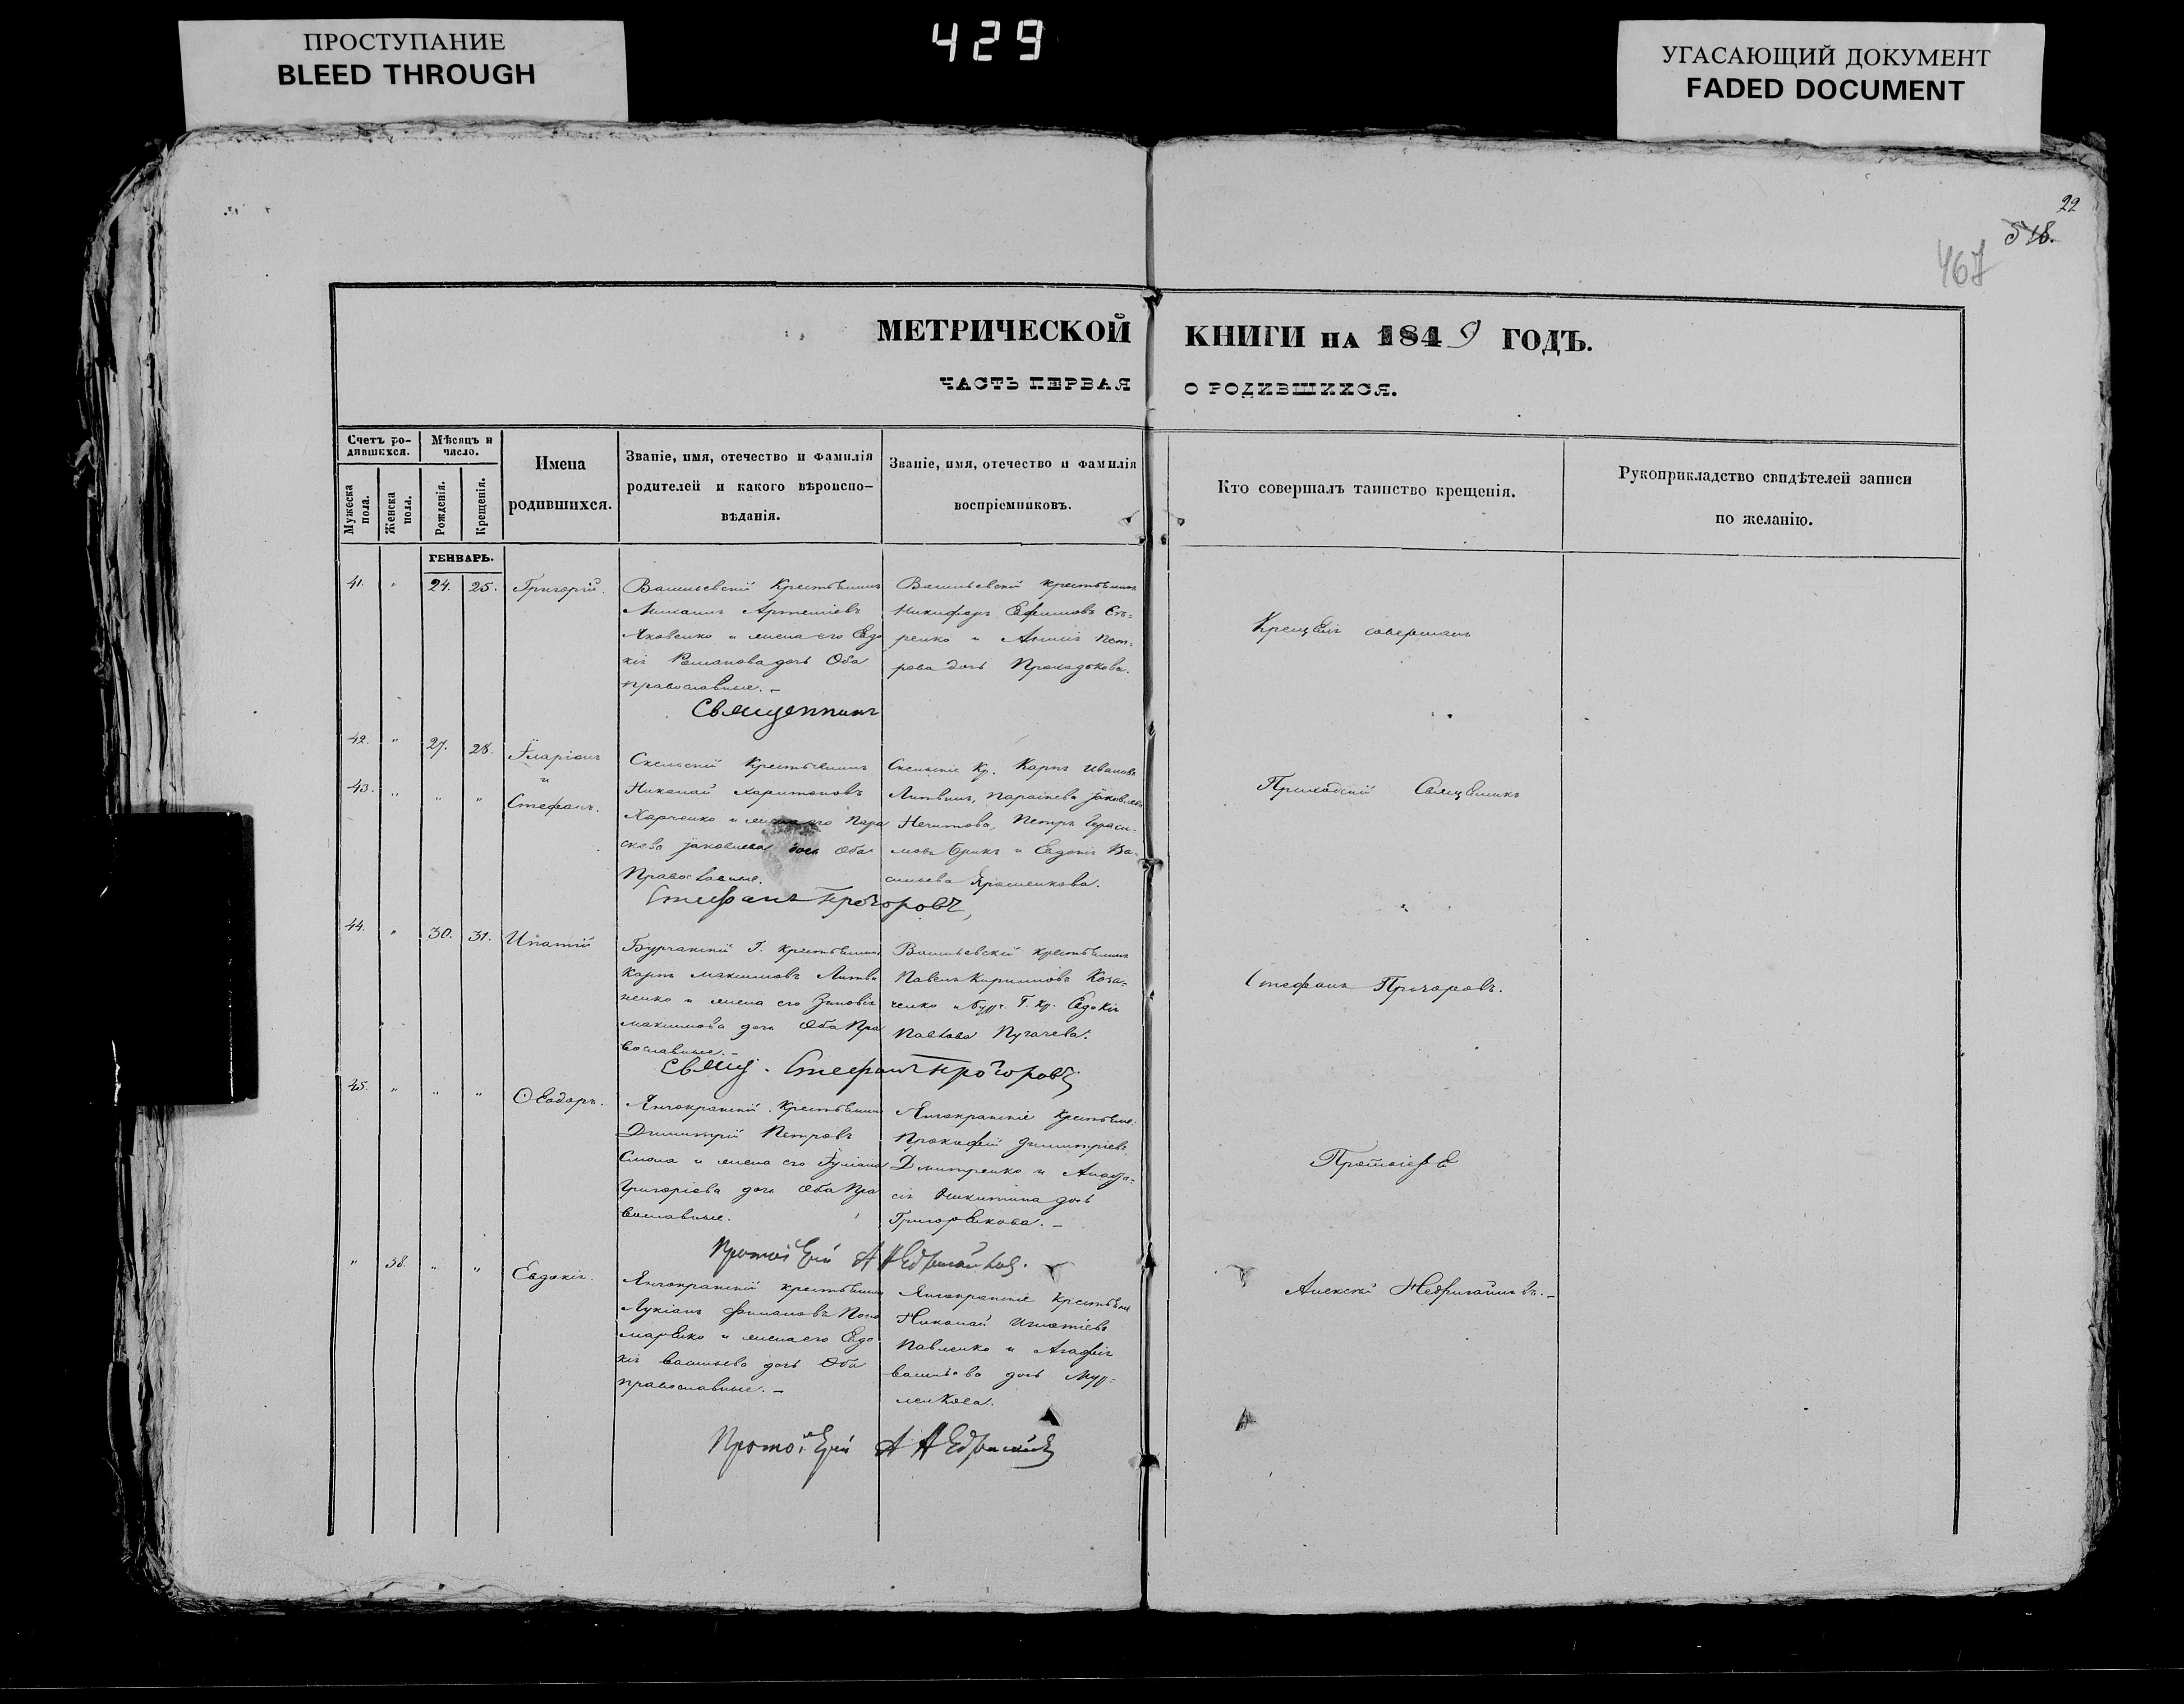 ПРОСТУПАНИЕ
BLEED THROUGH
429
УГАСАЮЩИЙ ДОКУМЕНТ
FADED DOCUMENT
22
518.
467
МЕТРИЧЕСКОЙ КНИГИ НА 1849 ГОДЪ.
ЧАСТЬ ПЕРВАЯ О РОДИВШИХСЯ.
Счетъ ро-
дившихся.
Мужеска
пола.
Женска
пола.
Мѣсяцъ и
число.
Рожденія.
Крещенія.
Имена
родившихся.
Званіе, имя, отечество и фамилія
родителей и какого вѣроиспо-
вѣданія.
Званіе, имя, отечество и фамилія
воспріемниковъ.
Кто совершалъ таинство крещенія.
Рукоприкладство свидѣтелей записи
по желанію.
ГЕНВАРЬ.
41. " 24. 25. Григорій.
Васильевскій Крестьянинъ
Михаилъ Артеміевъ
Яковенко и жена его Евдо
кія Романова дочь Оба
православные. –
Васильевскій крестьянинъ
Никифоръ Ефимовъ
ренко и Анна Пет-
рова дочь
Священникъ
Крещеніе совершалъ
42. " 27. 28. Іларіонъ
и
43. " " " Стефанъ.
Скельскій Крестьянинъ
Николай Харитоновъ
Харченко и жена его Пара
скева Іаковлева дочь Оба
Православные.
Скельскіе Кр. Карпъ Ивановъ
Литвинъ, Параскева Іаковлева
Петръ Гераси-
мовъ Брикъ и Евдокія Ва-
сильева Ярошенкова.
Стефанъ Прохоровъ,
Приходскій Священникъ
44. " 30. 31. Ипатій
Бурчакскій Г. Крестьянинъ
Карпъ Максимовъ Литви
ненко и жена его Зиновія
Максимова дочь Оба Пра
вославные. –
Васильевскій крестьянинъ
Павелъ Кириловъ Коза-
ченко и Бурч. Г. Кр. Евдокія
Павлова Пугачева.
Свящ. Стефанъ Прохоровъ
Стефанъ Прохоровъ.
45. " " " Ѳеодоръ.
Янчокракскій Крестьянинъ
Димитрій Петровъ
Смола и жена его Іуліана
Григоріева дочь Оба Пра
вославные.
Янчокракскіе Крестьяне
Прокофій Димитріевъ
Дмитренко и Анаста-
сія Никитина дочь
Протоіерей А Недригайловъ.
Протоіерей
" 38. " " Евдокія.
Янчокракскій крестьянинъ
Лукіанъ Поно
маренко и жена его Евдо
кія Васильева дочь Оба
православные. –
Янчокракскіе Крестьяне
Николай Игнатіевъ
Павленко и Агафія
Васильева дочь
Протоіерей А Недригайловъ
Алексѣй Недригайловъ. –